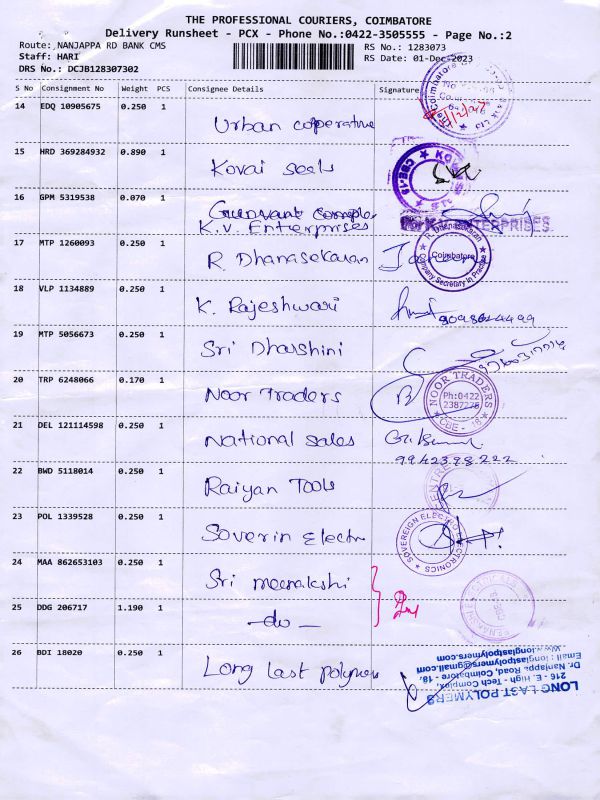 THE PROFESSIONAL COURIERS, COIMBATORE
Delivery Runsheet - PCX - Phone No.:0422-3505555 - Page No.:2
Route: NANJAPPA RD BANK CMS
Staff: HARI
DRS No.: DCJB128307302
RS No.: 1283073
RS Date: 01-Dec-2023
S No Consignment No Weight PCS Consignee Details Signature
14 EDQ 10905675 0.250 1
Urban coperative
15 HRD 369284932 0.890 1
Kovai seals
16 GPM 5319538 0.070 1
K.V. Enterprises
ENTERPRISES
17 MTP 1260093 0.250 1
R. Dhanasekaran
R. Dhanasekaran
Coimbatore
Company Secretary in Practice
18 VLP 1134889 0.250 1
K. Rajeshwari
19 MTP 5056673 0.250 1
Sri Dharshini
20 TRP 6248066 0.170 1
Noor Traders
NOOR TRADERS
Ph:0422
CBE - 18
21 DEL 121114598 0.250 1
National sales
9942398222
22 BWD 5118014 0.250 1
Raiyan Tools
23 POL 1339528 0.250 1
Soverin Electro
SOVEREIGN ELECTRO ELECTRONICS
24 MAA 862653103 0.250 1
Sri meenakshi
25 DDG 206717 1.190 1
- do -
26 BDI 18020 0.250 1
Long last polymers
LONG LAST POLYMERS
216 - E. High - Tech Complex,
Dr. Nanjappa Road, Coimbatore - 18.
Email : longlastpolymers@gmail.com
www.longlastpolymers.com